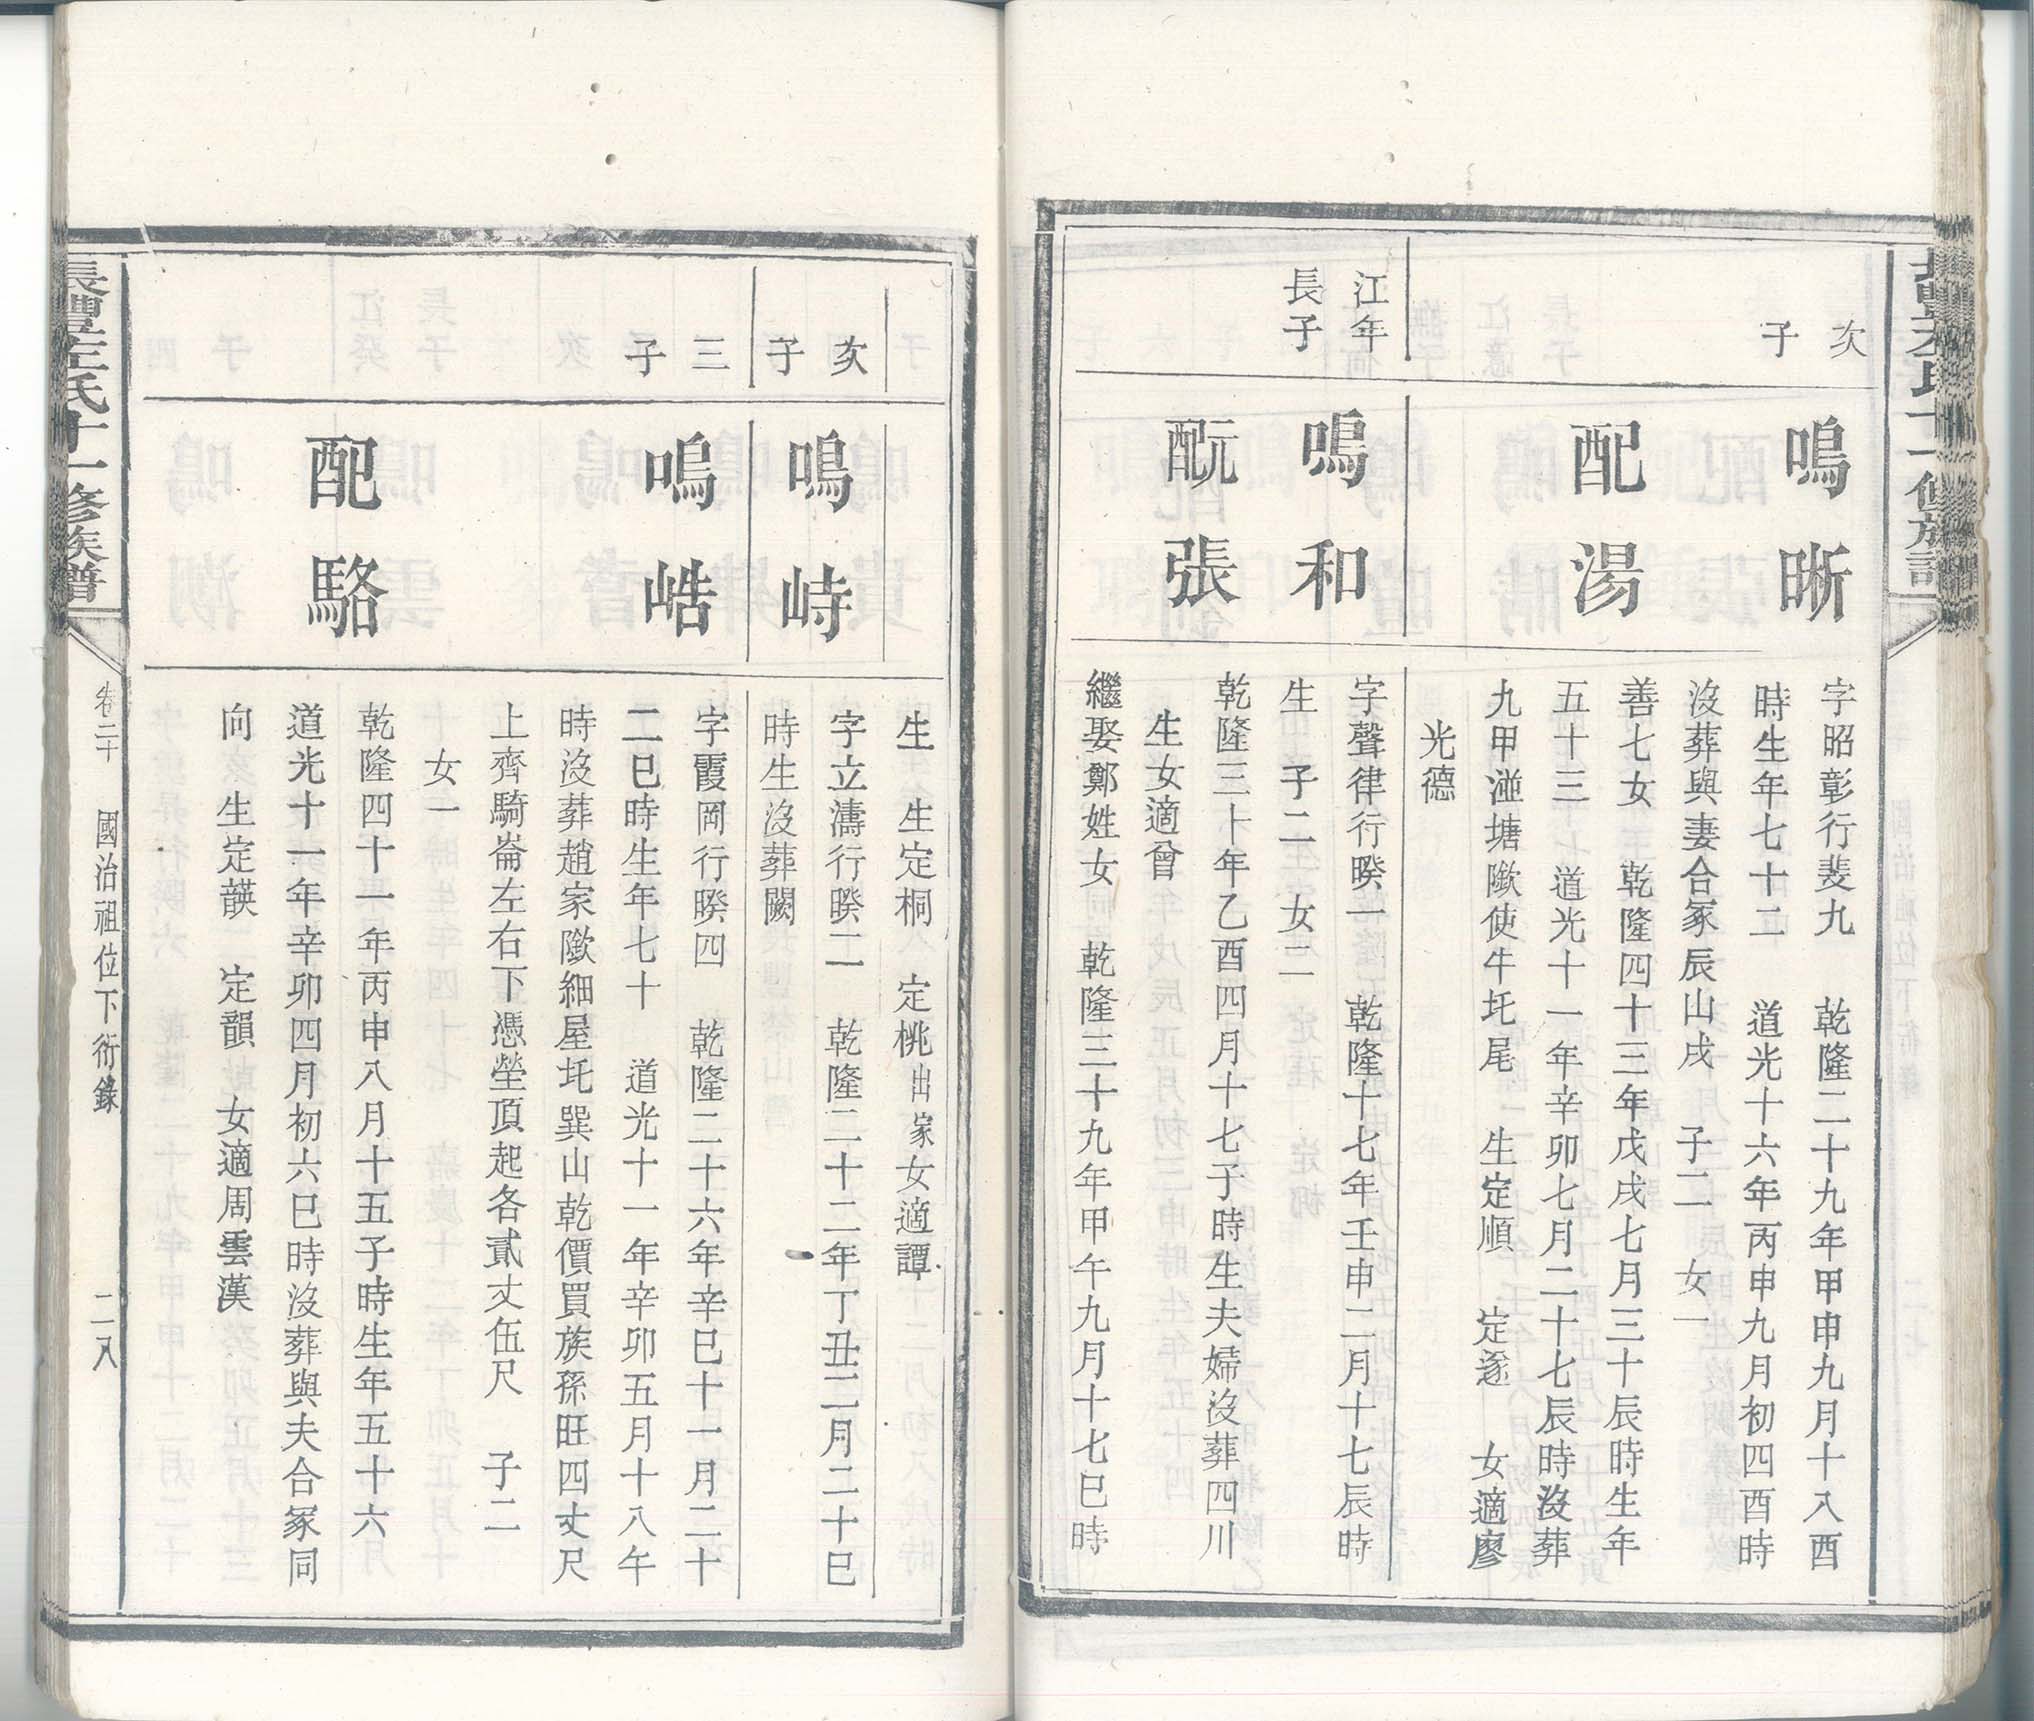 次
子
鳴晰
字昭彰行斐九　乾隆二十九年甲申九月十八酉
時生年七十二　道光十六年丙申九月初四酉時
沒葬與妻合冢辰山戌　子二　女一
配湯
善七女　乾隆四十三年戊戌七月三十辰時生年
五十三　道光十一年辛卯七月二十七辰時沒葬
九甲湴塘隞使牛圫尾　生定順　定遂　女適廖
光德
江年
長子
鳴和
字聲律行暌一　乾隆十七年壬申二月十七辰時
生　子二　女二
配元張
乾隆三十年乙酉四月十七子時生夫婦沒葬四川
生女適曾
繼娶鄭姓女　乾隆三十九年甲午九月十七巳時
生　生定桐　定桃出家女適譚
次
子
鳴峙
字立濤行暌二　乾隆二十二年丁丑二月二十巳
時生沒葬闕
三
子
鳴峼
字霞岡行暌四　乾隆二十六年辛巳十一月二十
二巳時生年七十　道光十一年辛卯五月十八午
時沒葬趙家隞細屋圫巽山乾價買族孫旺四丈尺
上齊騎崙左右下憑塋頂起各貳丈伍尺　子二
女一
配駱
乾隆四十一年丙申八月十五子時生年五十六
道光十一年辛卯四月初六巳時沒葬與夫合冢同
向　生定韺　定韻　女適周雲漢
長豐左氏十一修族譜
卷二十　國治祖位下衍錄　二八